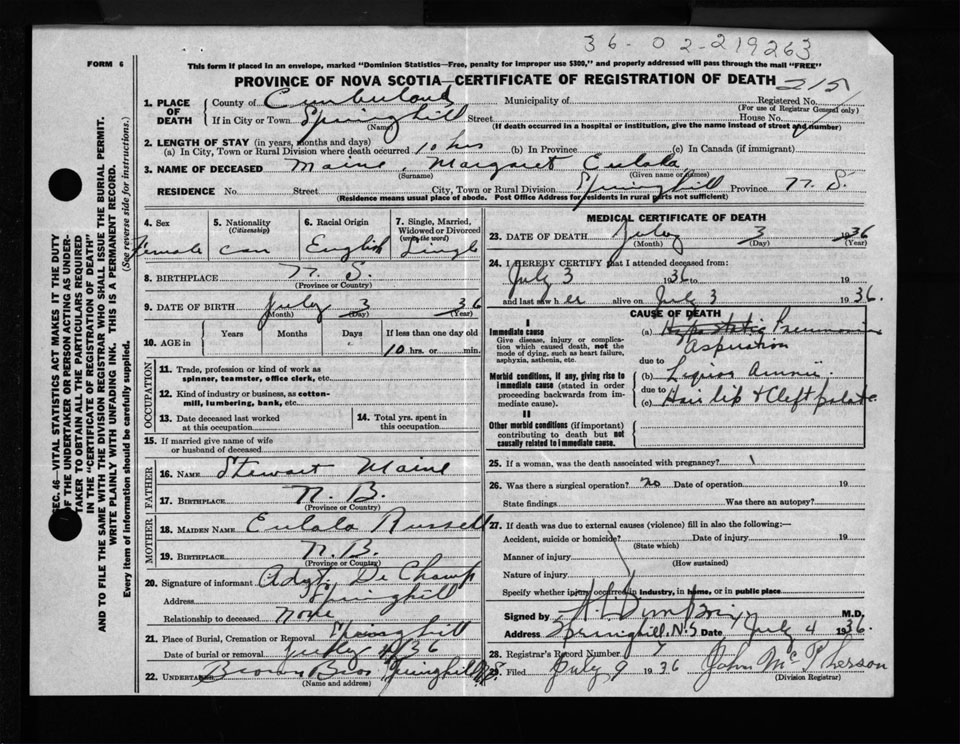 36-02-219263
FORM 6
This form if placed in an envelope, marked "Dominion Statistics—Free, penalty for improper use $300," and properly addressed will pass through the mail "FREE"
PROVINCE OF NOVA SCOTIA—CERTIFICATE OF REGISTRATION OF DEATH 215
1. PLACE OF DEATH County of Cumberland Municipality of Registered No.
(For use of Registrar General only)
If in City or Town Springhill Street House No.
(Name) (If death occurred in a hospital or institution, give the name instead of street and number)
2. LENGTH OF STAY (in years, months and days)
(a) In City, Town or Rural Division where death occurred 10 hrs (b) In Province (c) In Canada (if immigrant)
3. NAME OF DECEASED Maine, Margaret Eulala
(Surname) (Given name or names)
RESIDENCE No. Street City, Town or Rural Division Springhill Province N. S.
(Residence means usual place of abode. Post Office Address for residents in rural parts not sufficient)
4. Sex Female
5. Nationality (Citizenship) Can
6. Racial Origin English
7. Single, Married, Widowed or Divorced (write the word) Single
8. BIRTHPLACE N. S.
(Province or Country)
9. DATE OF BIRTH July 3 36
(Month) (Day) (Year)
10. AGE in Years Months Days If less than one day old
10 hrs. or min.
OCCUPATION
11. Trade, profession or kind of work as spinner, teamster, office clerk, etc.
12. Kind of industry or business, as cotton-mill, lumbering, bank, etc.
13. Date deceased last worked at this occupation
14. Total yrs. spent in this occupation
15. If married give name of wife or husband of deceased
FATHER
16. NAME Stewart Maine
17. BIRTHPLACE N. B.
(Province or Country)
MOTHER
18. MAIDEN NAME Eulala Russell
19. BIRTHPLACE N.B.
(Province or Country)
20. Signature of informant Adgt. De Champ
Address Springhill
Relationship to deceased None
21. Place of Burial, Cremation or Removal Springhill
Date of burial or removal July 4/36
22. UNDERTAKER Brown Bros Springhill N.S.
(Name and address)
MEDICAL CERTIFICATE OF DEATH
23. DATE OF DEATH July 3 1936
(Month) (Day) (Year)
24. I HEREBY CERTIFY that I attended deceased from:
July 3 1936 to 19
and last saw h er alive on July 3 1936.
CAUSE OF DEATH
I
Immediate cause
Give disease, injury or complication which caused death, not the mode of dying, such as heart failure, asphyxia, asthenia, etc.
(a) Hypostatic Pneumonia
Aspiration
due to
Morbid conditions, if any, giving rise to immediate cause (stated in order proceeding backwards from immediate cause).
(b) Liquor Amnii.
due to
(c) Hair lip & Cleft palate
II
Other morbid conditions (if important) contributing to death but not causally related to immediate cause.
25. If a woman, was the death associated with pregnancy?
26. Was there a surgical operation? no Date of operation 19
State findings Was there an autopsy?
27. If death was due to external causes (violence) fill in also the following:—
Accident, suicide or homicide? Date of injury 19
(State which)
Manner of injury
(How sustained)
Nature of injury
Specify whether injury occurred in industry, in home, or in public place
Signed by M.D.
Address Springhill, N.S. Date July 4 1936.
28. Registrar's Record Number 7
29. Filed July 9 1936 John McPherson
(Division Registrar)
SEC. 46—VITAL STATISTICS ACT MAKES IT THE DUTY
OF THE UNDERTAKER OR PERSON ACTING AS UNDER-
TAKER TO OBTAIN ALL THE PARTICULARS REQUIRED
IN THE "CERTIFICATE OF REGISTRATION OF DEATH"
AND TO FILE THE SAME WITH THE DIVISION REGISTRAR WHO SHALL ISSUE THE BURIAL PERMIT.
WRITE PLAINLY WITH UNFADING INK. THIS IS A PERMANENT RECORD.
Every item of information should be carefully supplied. (See reverse side for instructions.)